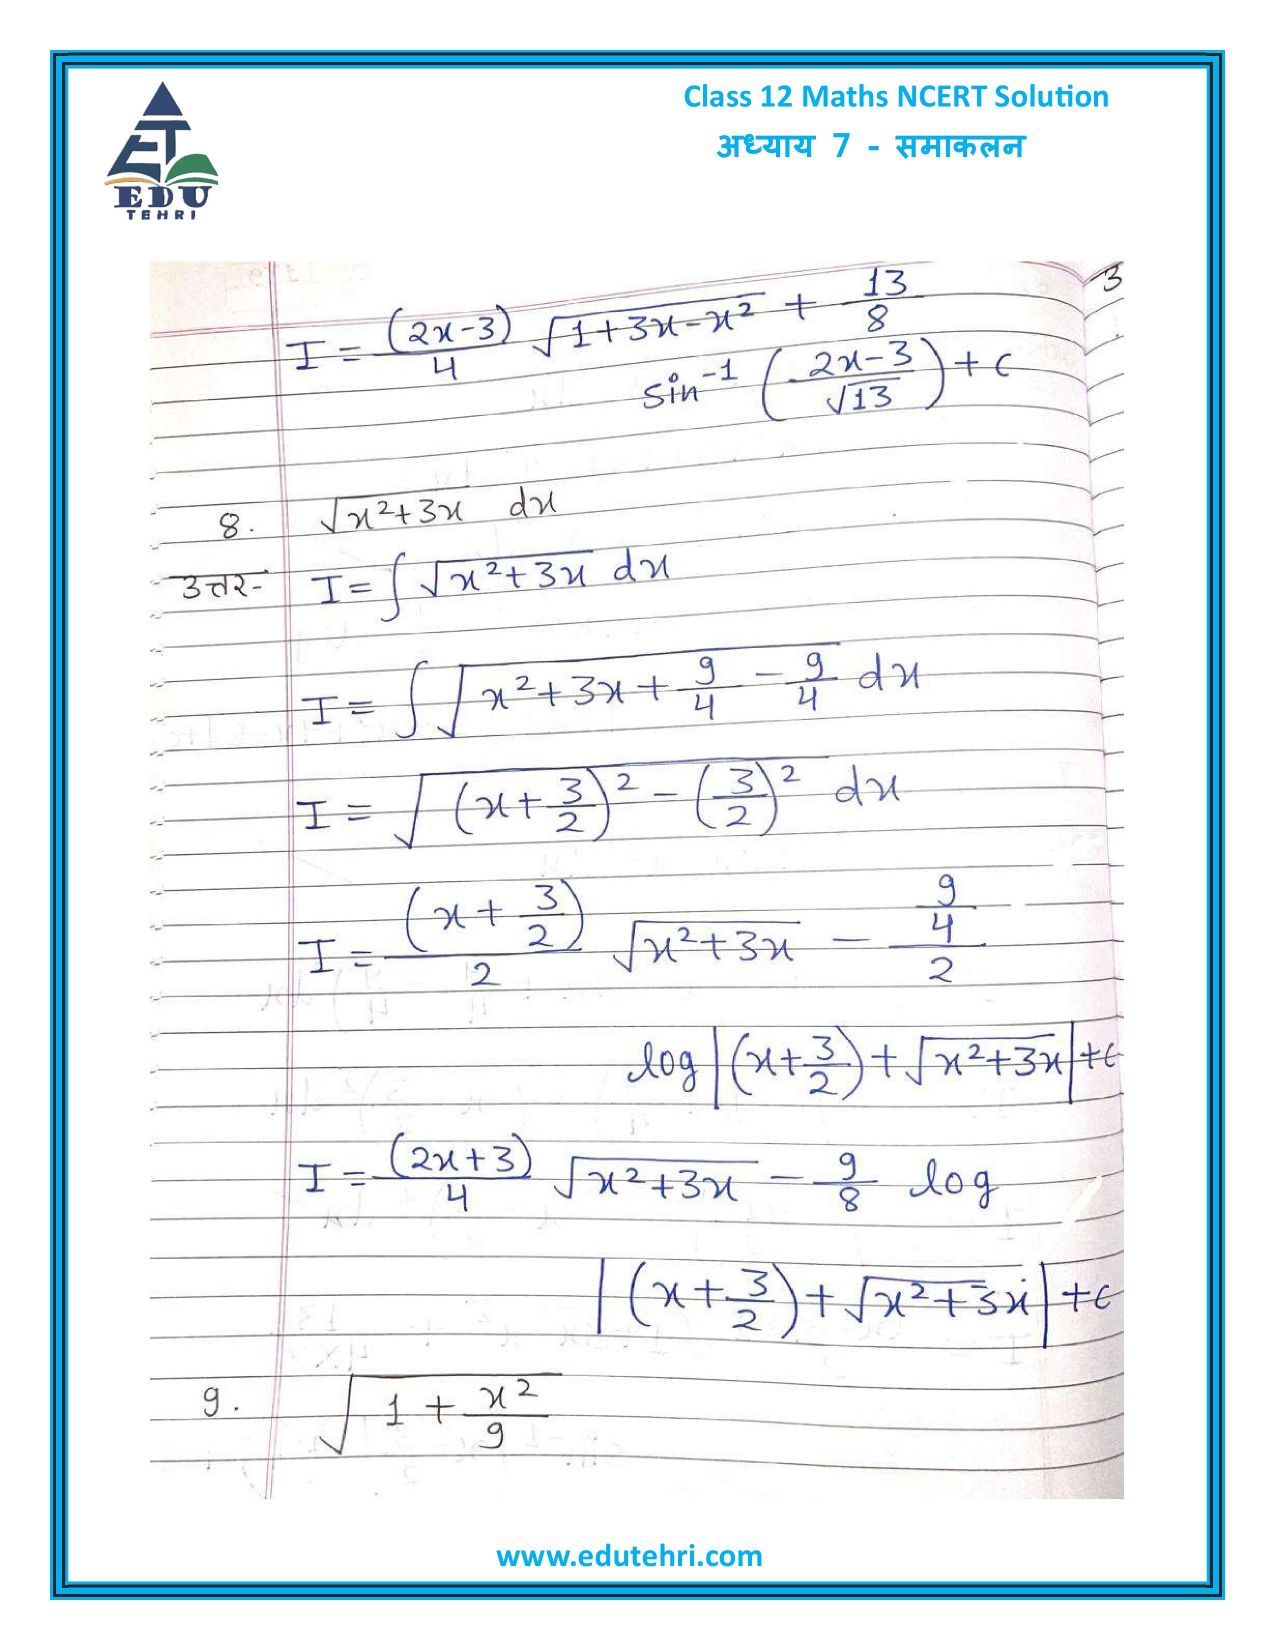 Class 12 Maths NCERT Solution
अध्याय 7 - समाकलन
EDU
TEHRI
3
I = (2x-3)/4 √(1+3x-x²) + 13/8
sin⁻¹ ((2x-3)/√13) + c
8. √(x²+3x) dx
उत्तर- I = ∫ √(x²+3x) dx
I = ∫ √(x²+3x+9/4 - 9/4) dx
I = √((x+3/2)² - (3/2)²) dx
I = (x+3/2)/2 √(x²+3x) - (9/4)/2
log |(x+3/2) + √(x²+3x)| + c
I = (2x+3)/4 √(x²+3x) - 9/8 log
|(x+3/2) + √(x²+3x)| + c
9. √(1 + x²/9)
www.edutehri.com